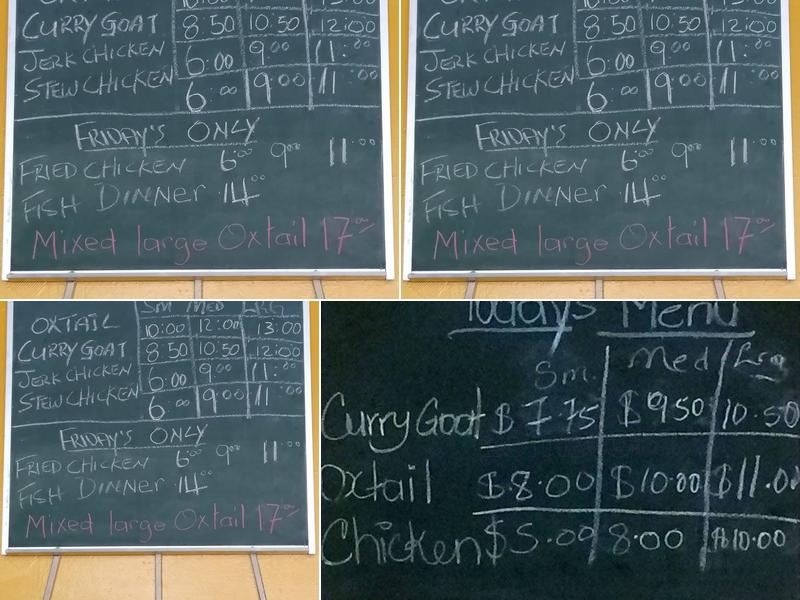 CURRY GOAT 8:50 10:50 12:00
JERK CHICKEN 6:00 9:00 11:00
STEW CHICKEN 6:00 9:00 11:00
FRIDAY'S ONLY
FRIED CHICKEN 6:00 9:00 11:00
FISH DINNER 14:00
Mixed large Oxtail 17:00
CURRY GOAT 8:50 10:50 12:00
JERK CHICKEN 6:00 9:00 11:00
STEW CHICKEN 6:00 9:00 11:00
FRIDAY'S ONLY
FRIED CHICKEN 6:00 9:00 11:00
FISH DINNER 14:00
Mixed large Oxtail 17:00
SM MED LRG
OXTAIL 10:00 12:00 13:00
CURRY GOAT 8:50 10:50 12:00
JERK CHICKEN 6:00 9:00 11:00
STEW CHICKEN 6:00 9:00 11:00
FRIDAY'S ONLY
FRIED CHICKEN 6:00 9:00 11:00
FISH DINNER 14:00
Mixed large Oxtail 17:00
Today's Menu
Sm. Med Lrg
Curry Goat $7.75 $9.50 10.50
Oxtail $8.00 $10.00 $11.00
Chicken $5.00 8.00 $10.00